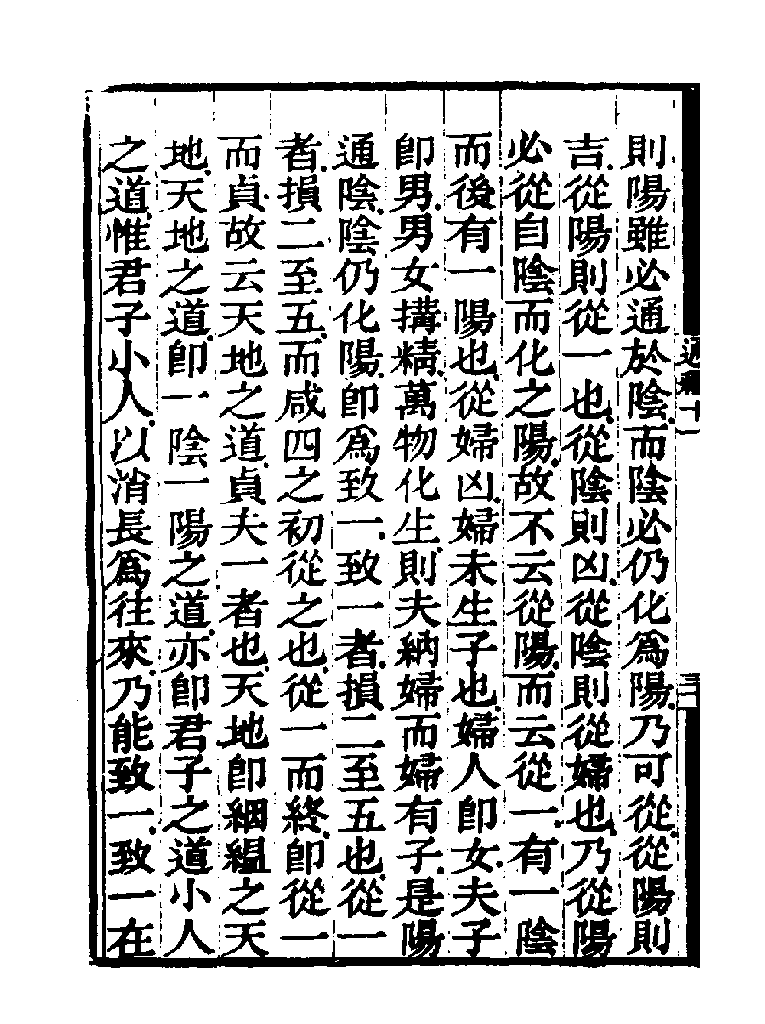 則陽雖必通於陰而陰必仍化爲陽乃可從從陽則
吉從陽則從一也從陰則凶從陰則從婦也乃從陽
必從自陰而化之陽故不云從陽而云從一有一陰
而後有一陽也從婦凶婦未生子也婦人卽女夫子
卽男男女搆精萬物化生則夫納婦而婦有子是陽
通陰陰仍化陽卽爲致一致一者損二至五也從一
者損二至五而咸四之初從之也從一而終卽從一
而貞故云天地之道貞夫一者也天地卽絪縕之天
地天地之道卽一陰一陽之道亦卽君子之道小人
之道惟君子小人以消長爲往來乃能致一致一在